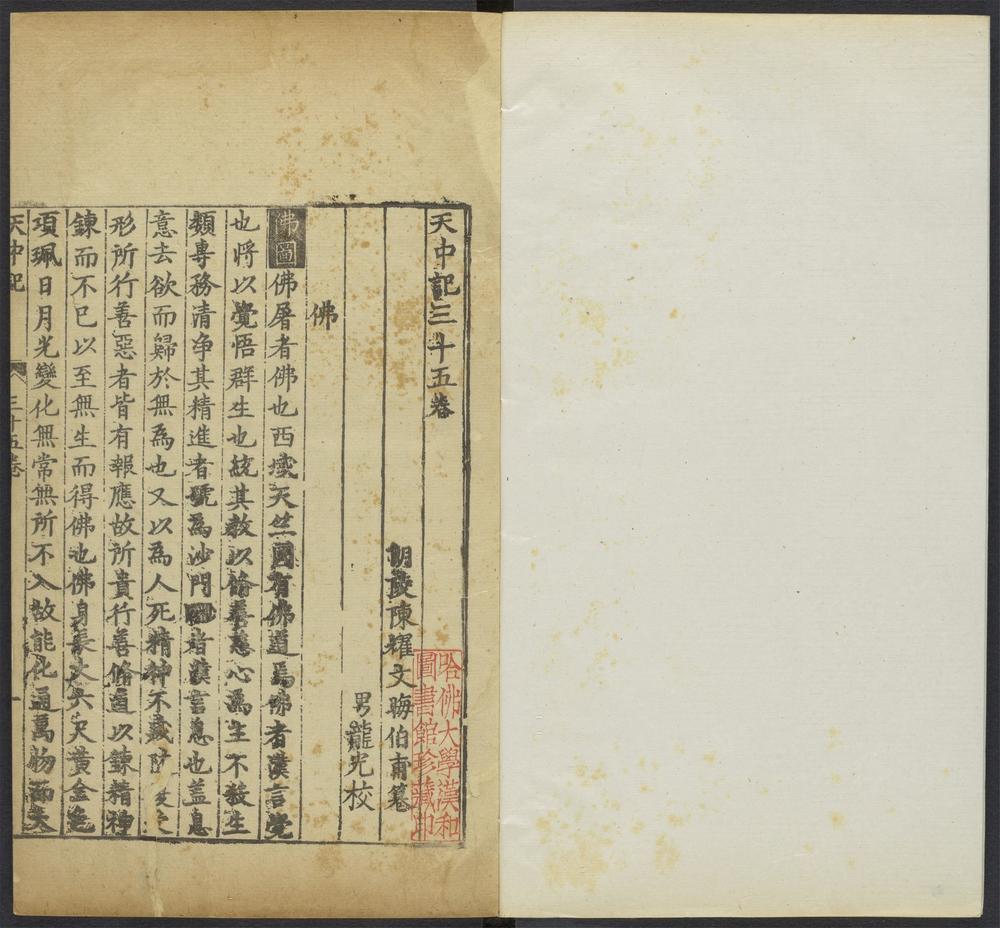 天中記三十五卷
朗陵陳耀文晦伯甫纂
男龍光校
佛
佛圖佛屠者佛也西域天竺國有佛道焉佛者漢言覺
也將以覺悟群生也統其教以脩善慈心為主不殺生
類專務清净其精進者號為沙門沙門者漢言息也盖息
意去欲而歸於無為也又以為人死精神不滅隨復受
形所行善惡者皆有報應故所貴行善脩道以鍊精神
鍊而不已以至無生而得佛也佛身長丈六尺黄金色
項珮日月光變化無常無所不入故能化通萬物而大
天中記 三十五卷 一
哈佛大學漢和
圖書館珍藏印